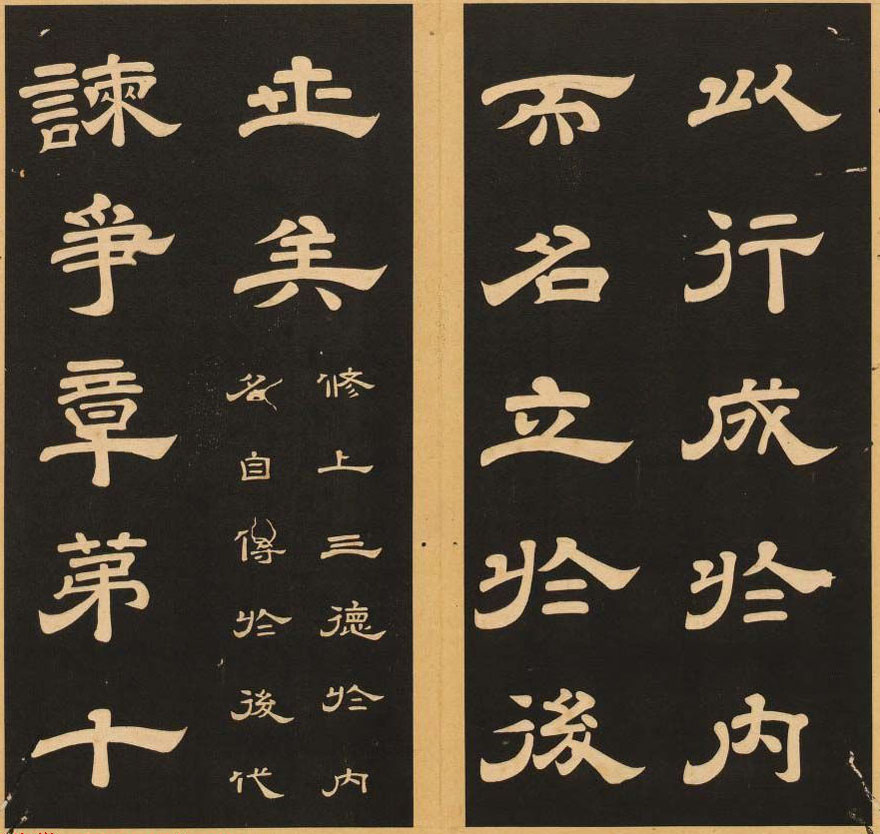 以行成於内
而名立於後
世矣
修上三德於内
名自傳於後代
諫爭章苐十